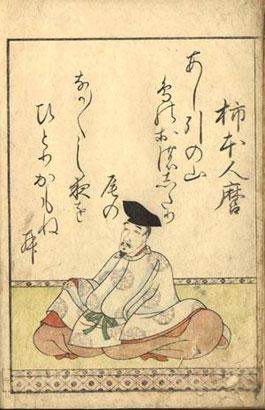 柿本人麿
あし引の山
鳥のおのしたり
尾の
なか〱し夜を
ひとりかもね
む